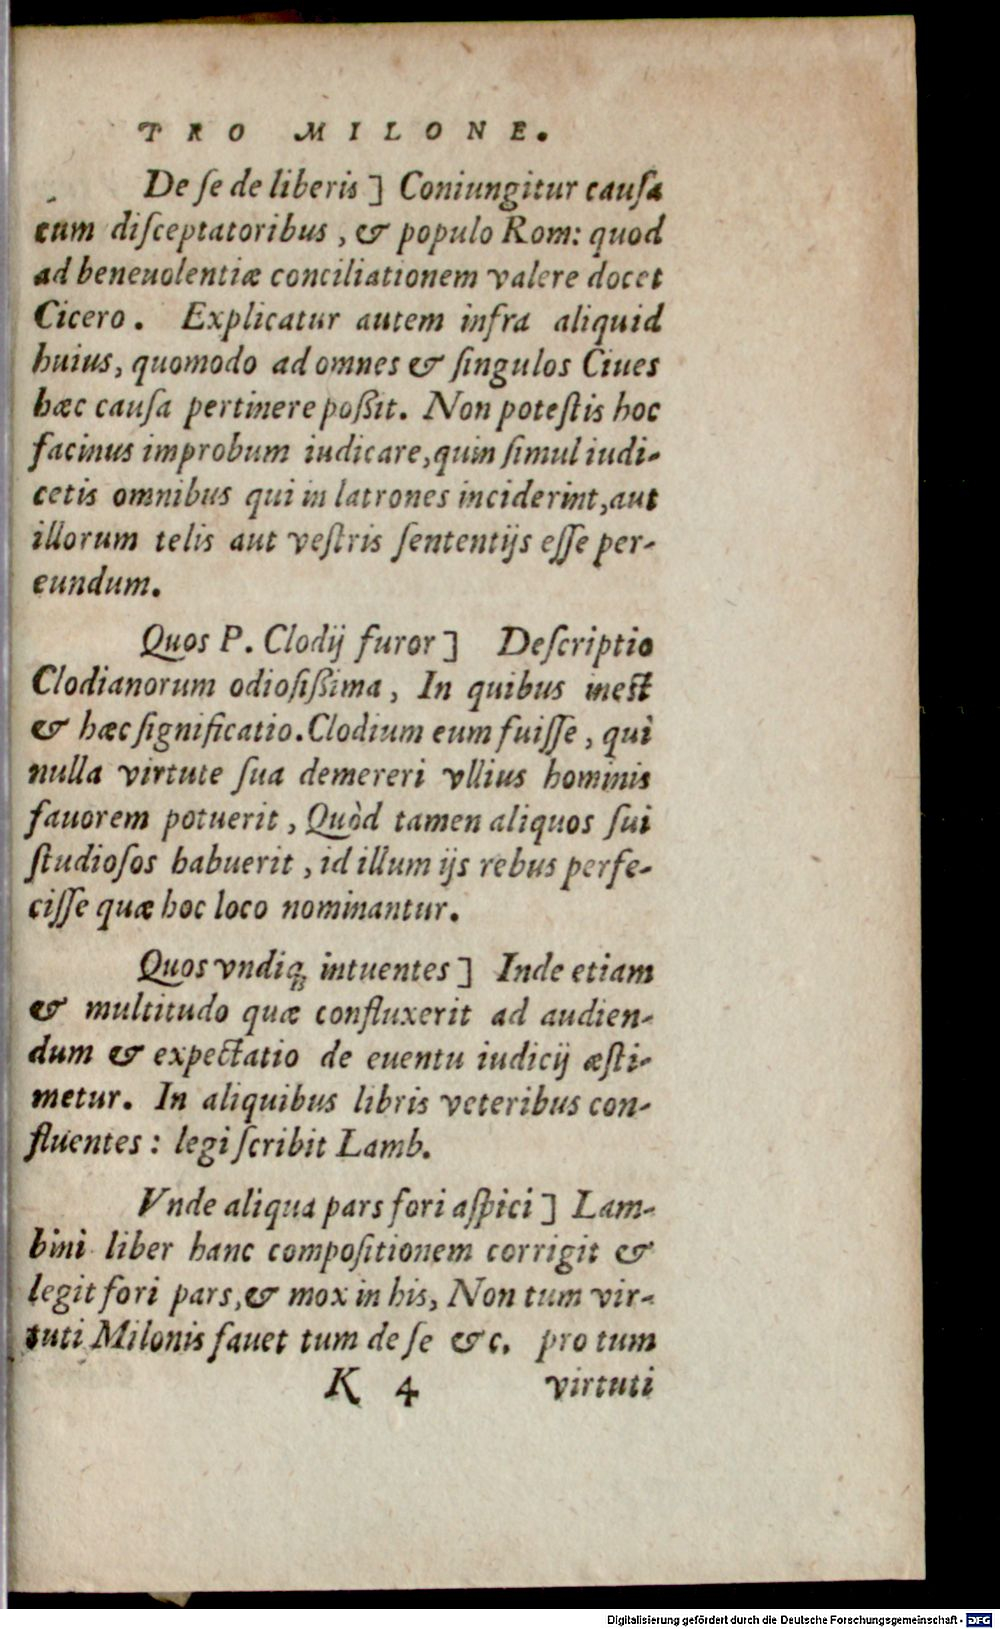 PRO MILONE.
De ſe de liberis ] Coniungitur cauſa
cum diſceptatoribus, & populo Rom: quod
ad beneuolentiæ conciliationem valere docet
Cicero. Explicatur autem infra aliquid
huius, quomodo ad omnes & ſingulos Ciues
hæc cauſa pertinere poßit. Non poteſtis hoc
facinus improbum iudicare, quin ſimul iudi-
cetis omnibus qui in latrones inciderint, aut
illorum telis aut veſtris ſententijs eſſe per-
eundum.
Quos P. Clodij furor ] Deſcriptio
Clodianorum odioſißima, In quibus ineſt
& hæc ſignificatio. Clodium eum fuiſſe, qui
nulla virtute ſua demereri vllius hominis
fauorem potuerit, Quòd tamen aliquos ſui
ſtudioſos habuerit, id illum ijs rebus perfe-
ciſſe quæ hoc loco nominantur.
Quos vndiqꝫ intuentes ] Inde etiam
& multitudo quæ confluxerit ad audien-
dum & expectatio de euentu iudicij æſti-
metur. In aliquibus libris veteribus con-
fluentes: legi ſcribit Lamb.
Vnde aliqua pars fori aſpici ] Lam-
bini liber hanc compoſitionem corrigit &
legit fori pars, & mox in his, Non tum vir-
tuti Milonis fauet tum de ſe &c. pro tum
K 4 virtuti
Digitalisierung gefördert durch die Deutsche Forschungsgemeinschaft - DFG